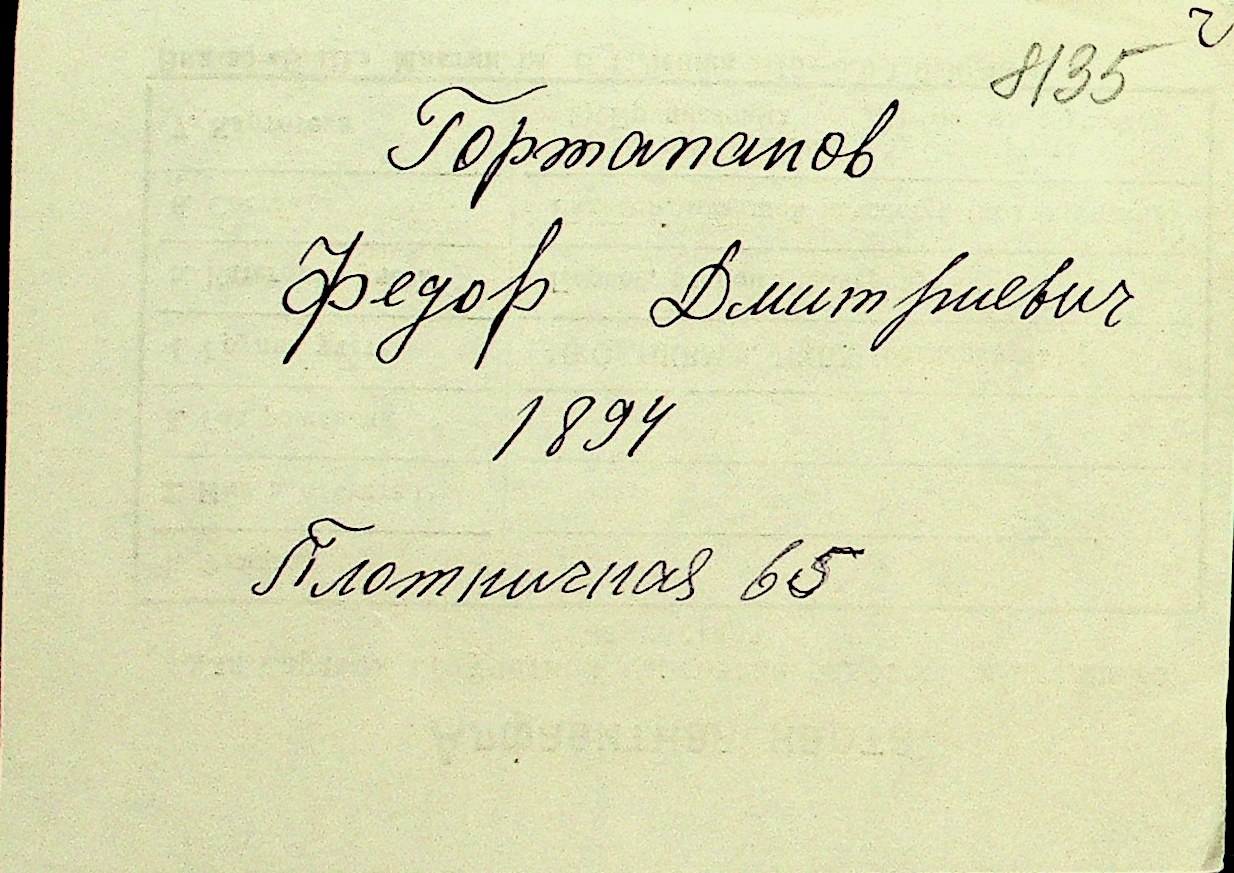 8135
Гортапанов
Федор Дмитриевич
1894
Плотничная 65